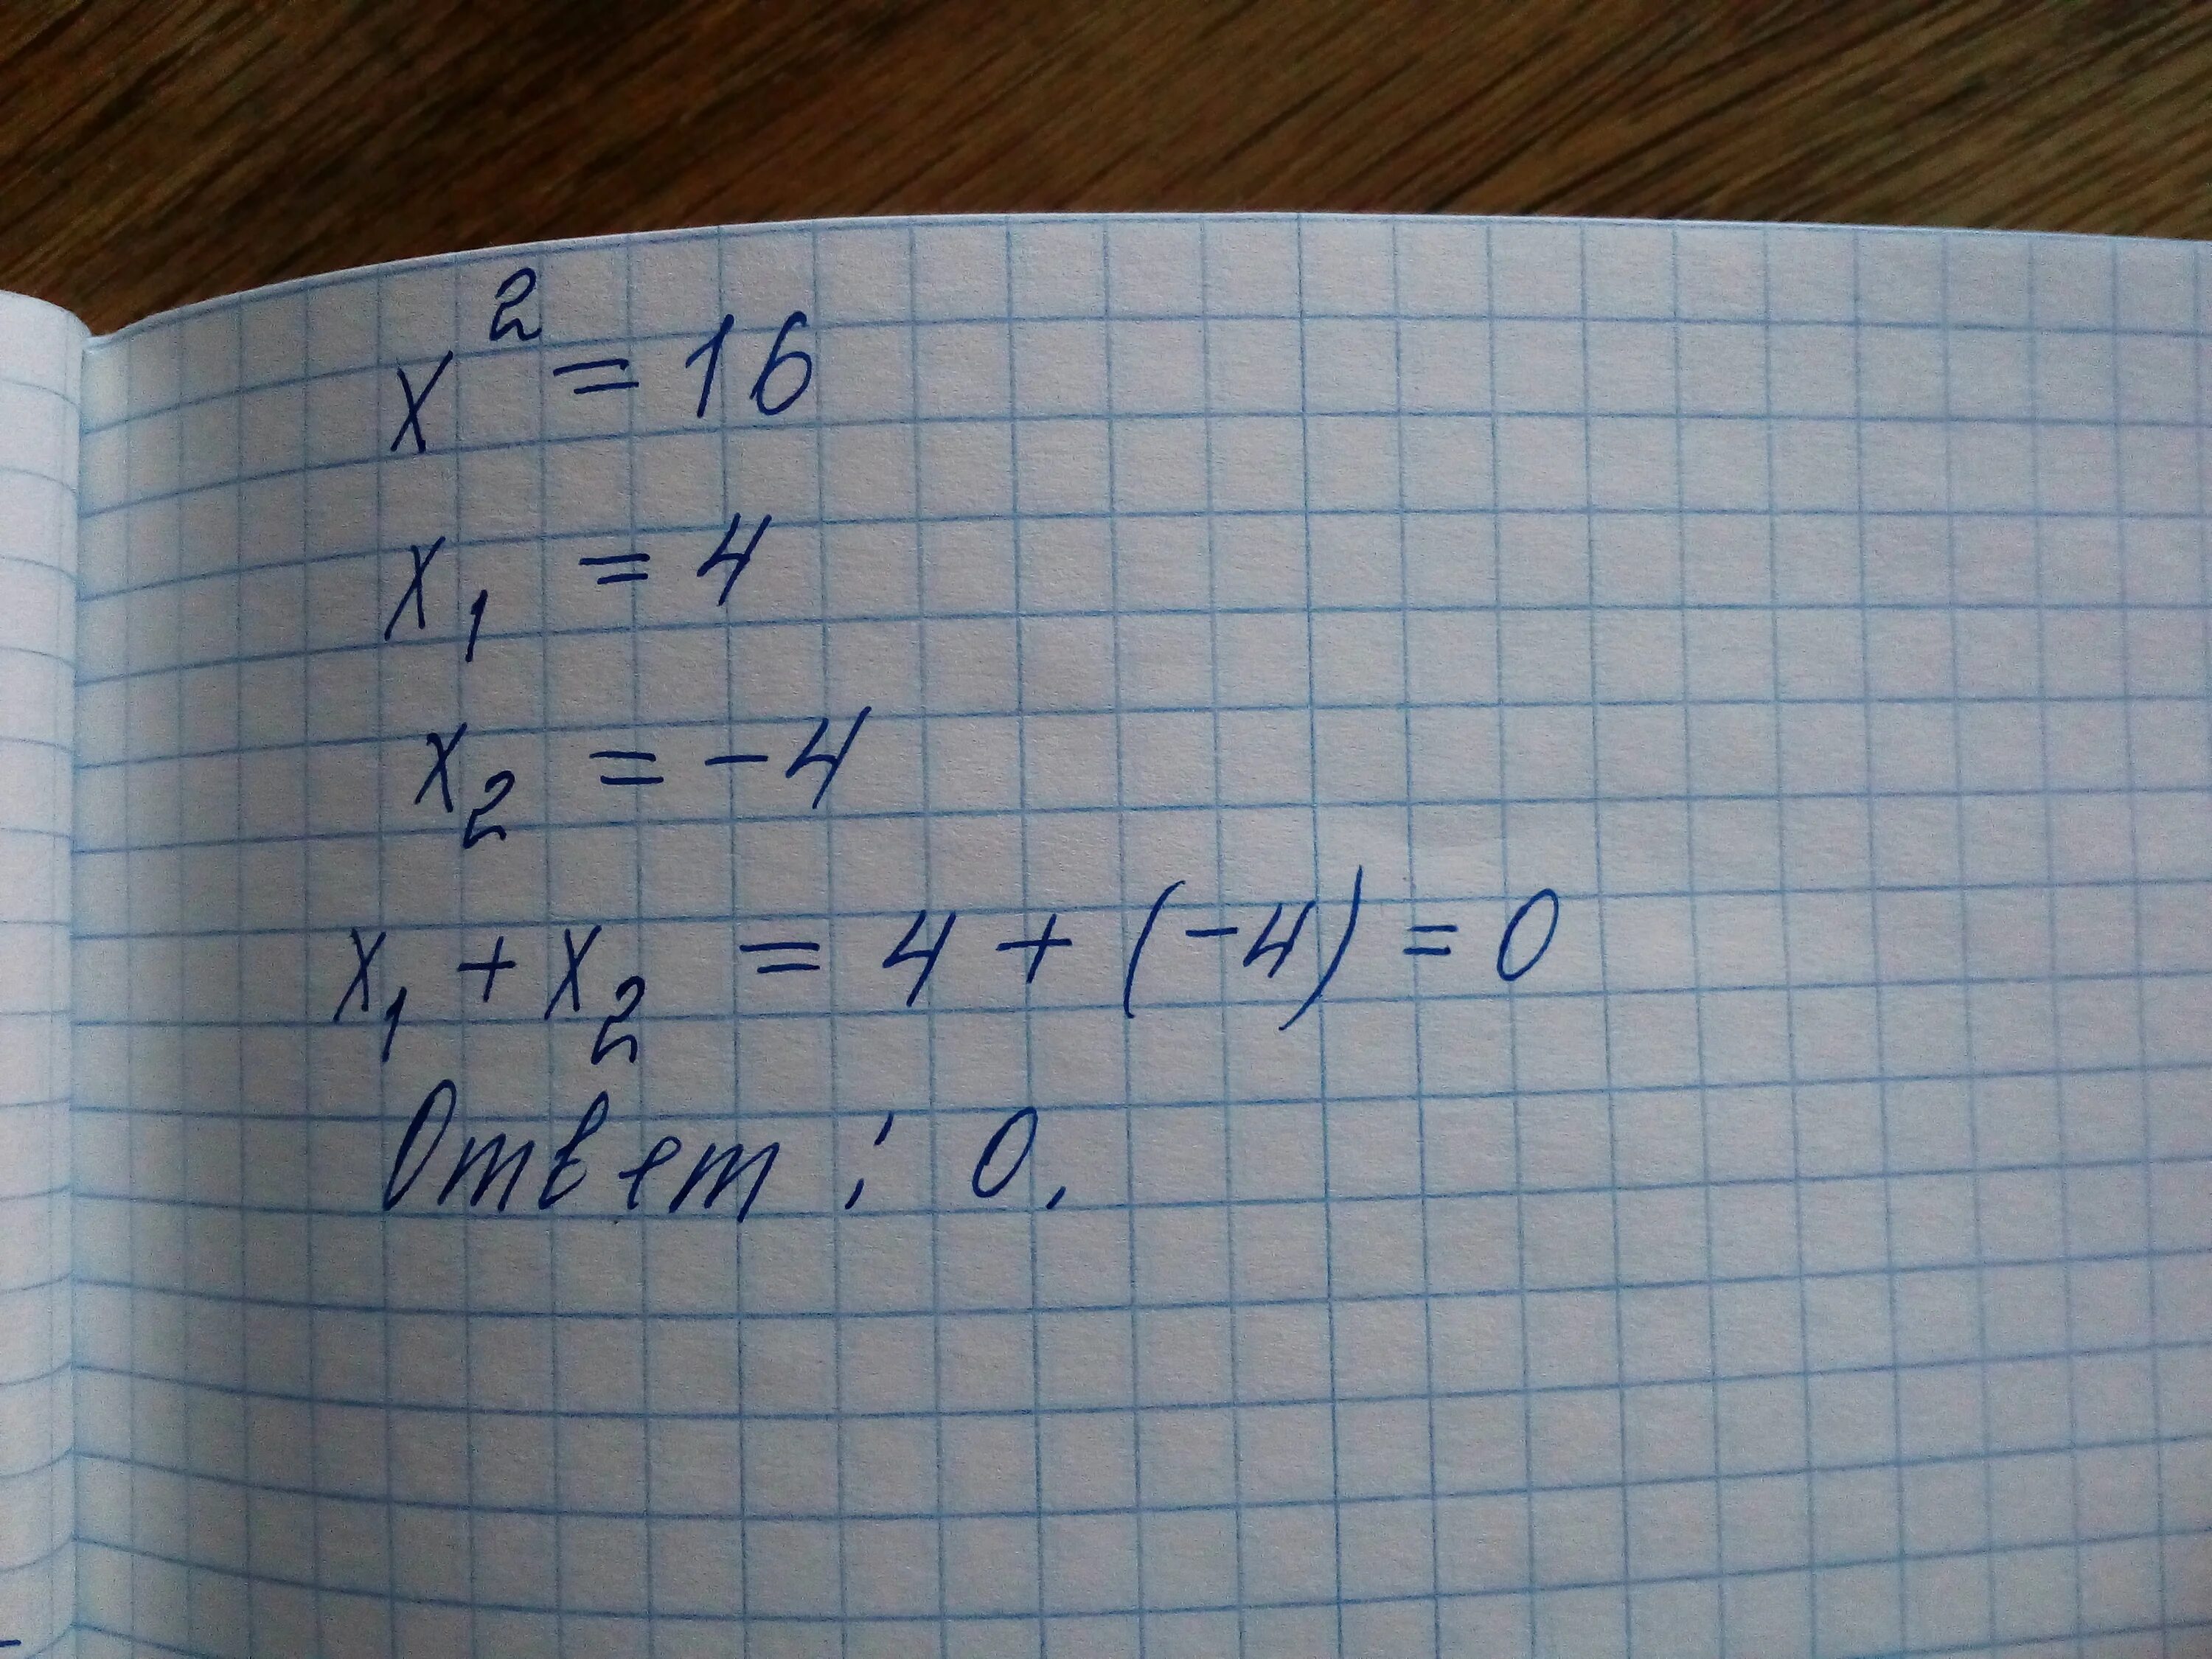 x² = 16
x₁ = 4
x₂ = -4
x₁ + x₂ = 4 + (-4) = 0
Ответ: 0.